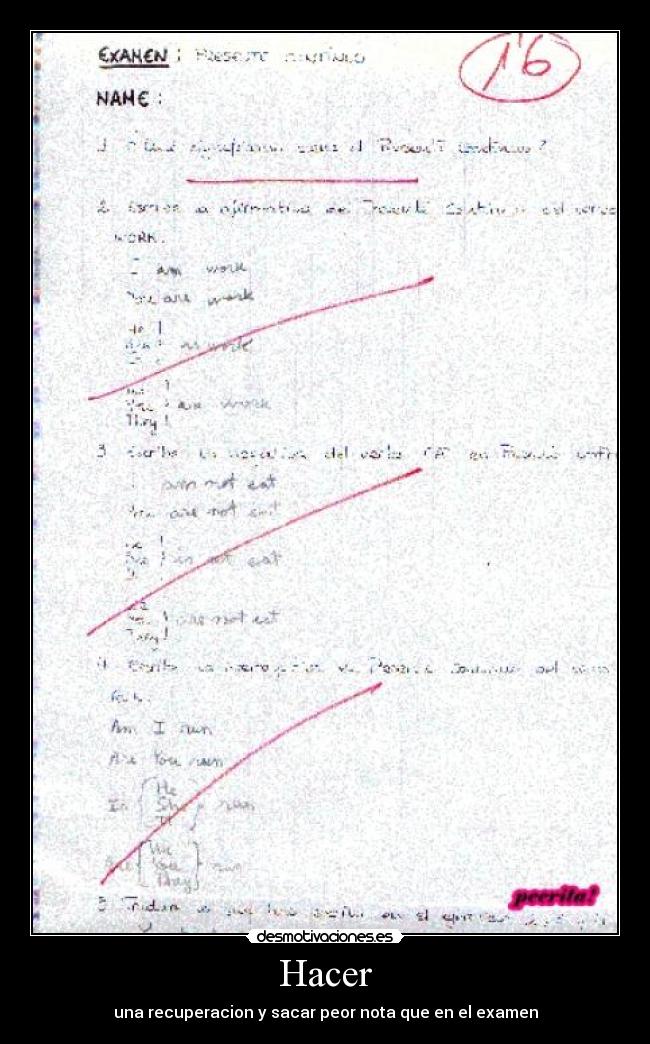 EXAMEN : PRESENTE CONTÍNUO
1'6
NAME :
1 ¿ Qué significan el Present Continuo ?
2 Escribe la afirmativa del Presente Continuo del verbo
WORK.
I am work
You are work
He
She is work
It
We
You are work
They
3 Escribe la negativa del verbo EAT en Presente
I am not eat
You are not eat
He
She is not eat
It
We
You are not eat
They
4 Escribe la interrogativa del Presente Continuo del verbo
RUN.
Am I run
Are You run
He
Is She run
It
We
Are You run
They
5 lo que has escrito en el ejercicio
peerita!
desmotivaciones.es
Hacer
una recuperacion y sacar peor nota que en el examen